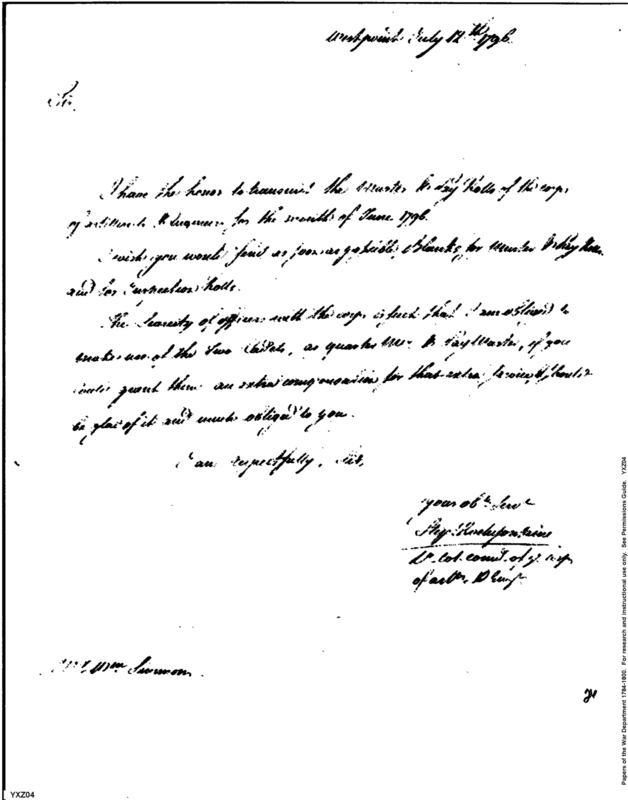 Westpoint July 12th 1796.
Sir,
I have the honor to transmit the Muster & Pay Rolls of the corps
of artillerists & Engineers for the month of June 1796.
I wish you would send as soon as possible, Blanks, for Muster & Pay Rolls
and for Inspection Rolls.
The Scarcity of officers with the corps is such that I am obliged to
make use of the two Cadets, as quarter Mr. & PayMaster, if you
could grant them an extra compensation for that extra service I should
be glad of it and much obliged to you.
I am respectfully, Sir,
your obt. Servt
Step. Rochefontaine
Lt. Col. Comdt. of ye. corps
of artts. & Engrs
Wm Simmons
YXZ04
Papers of the War Department 1784-1800. For research and instructional use only. See Permissions Guide. YXZ04